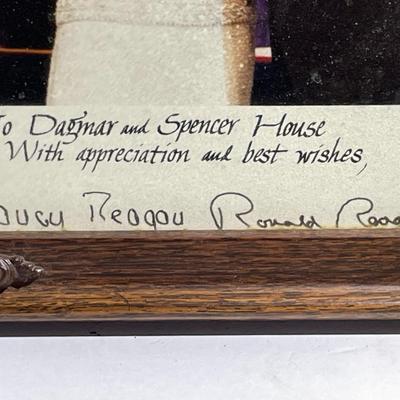 To Dagmar and Spencer House
With appreciation and best wishes,
Nancy Reagan Ronald Reagan